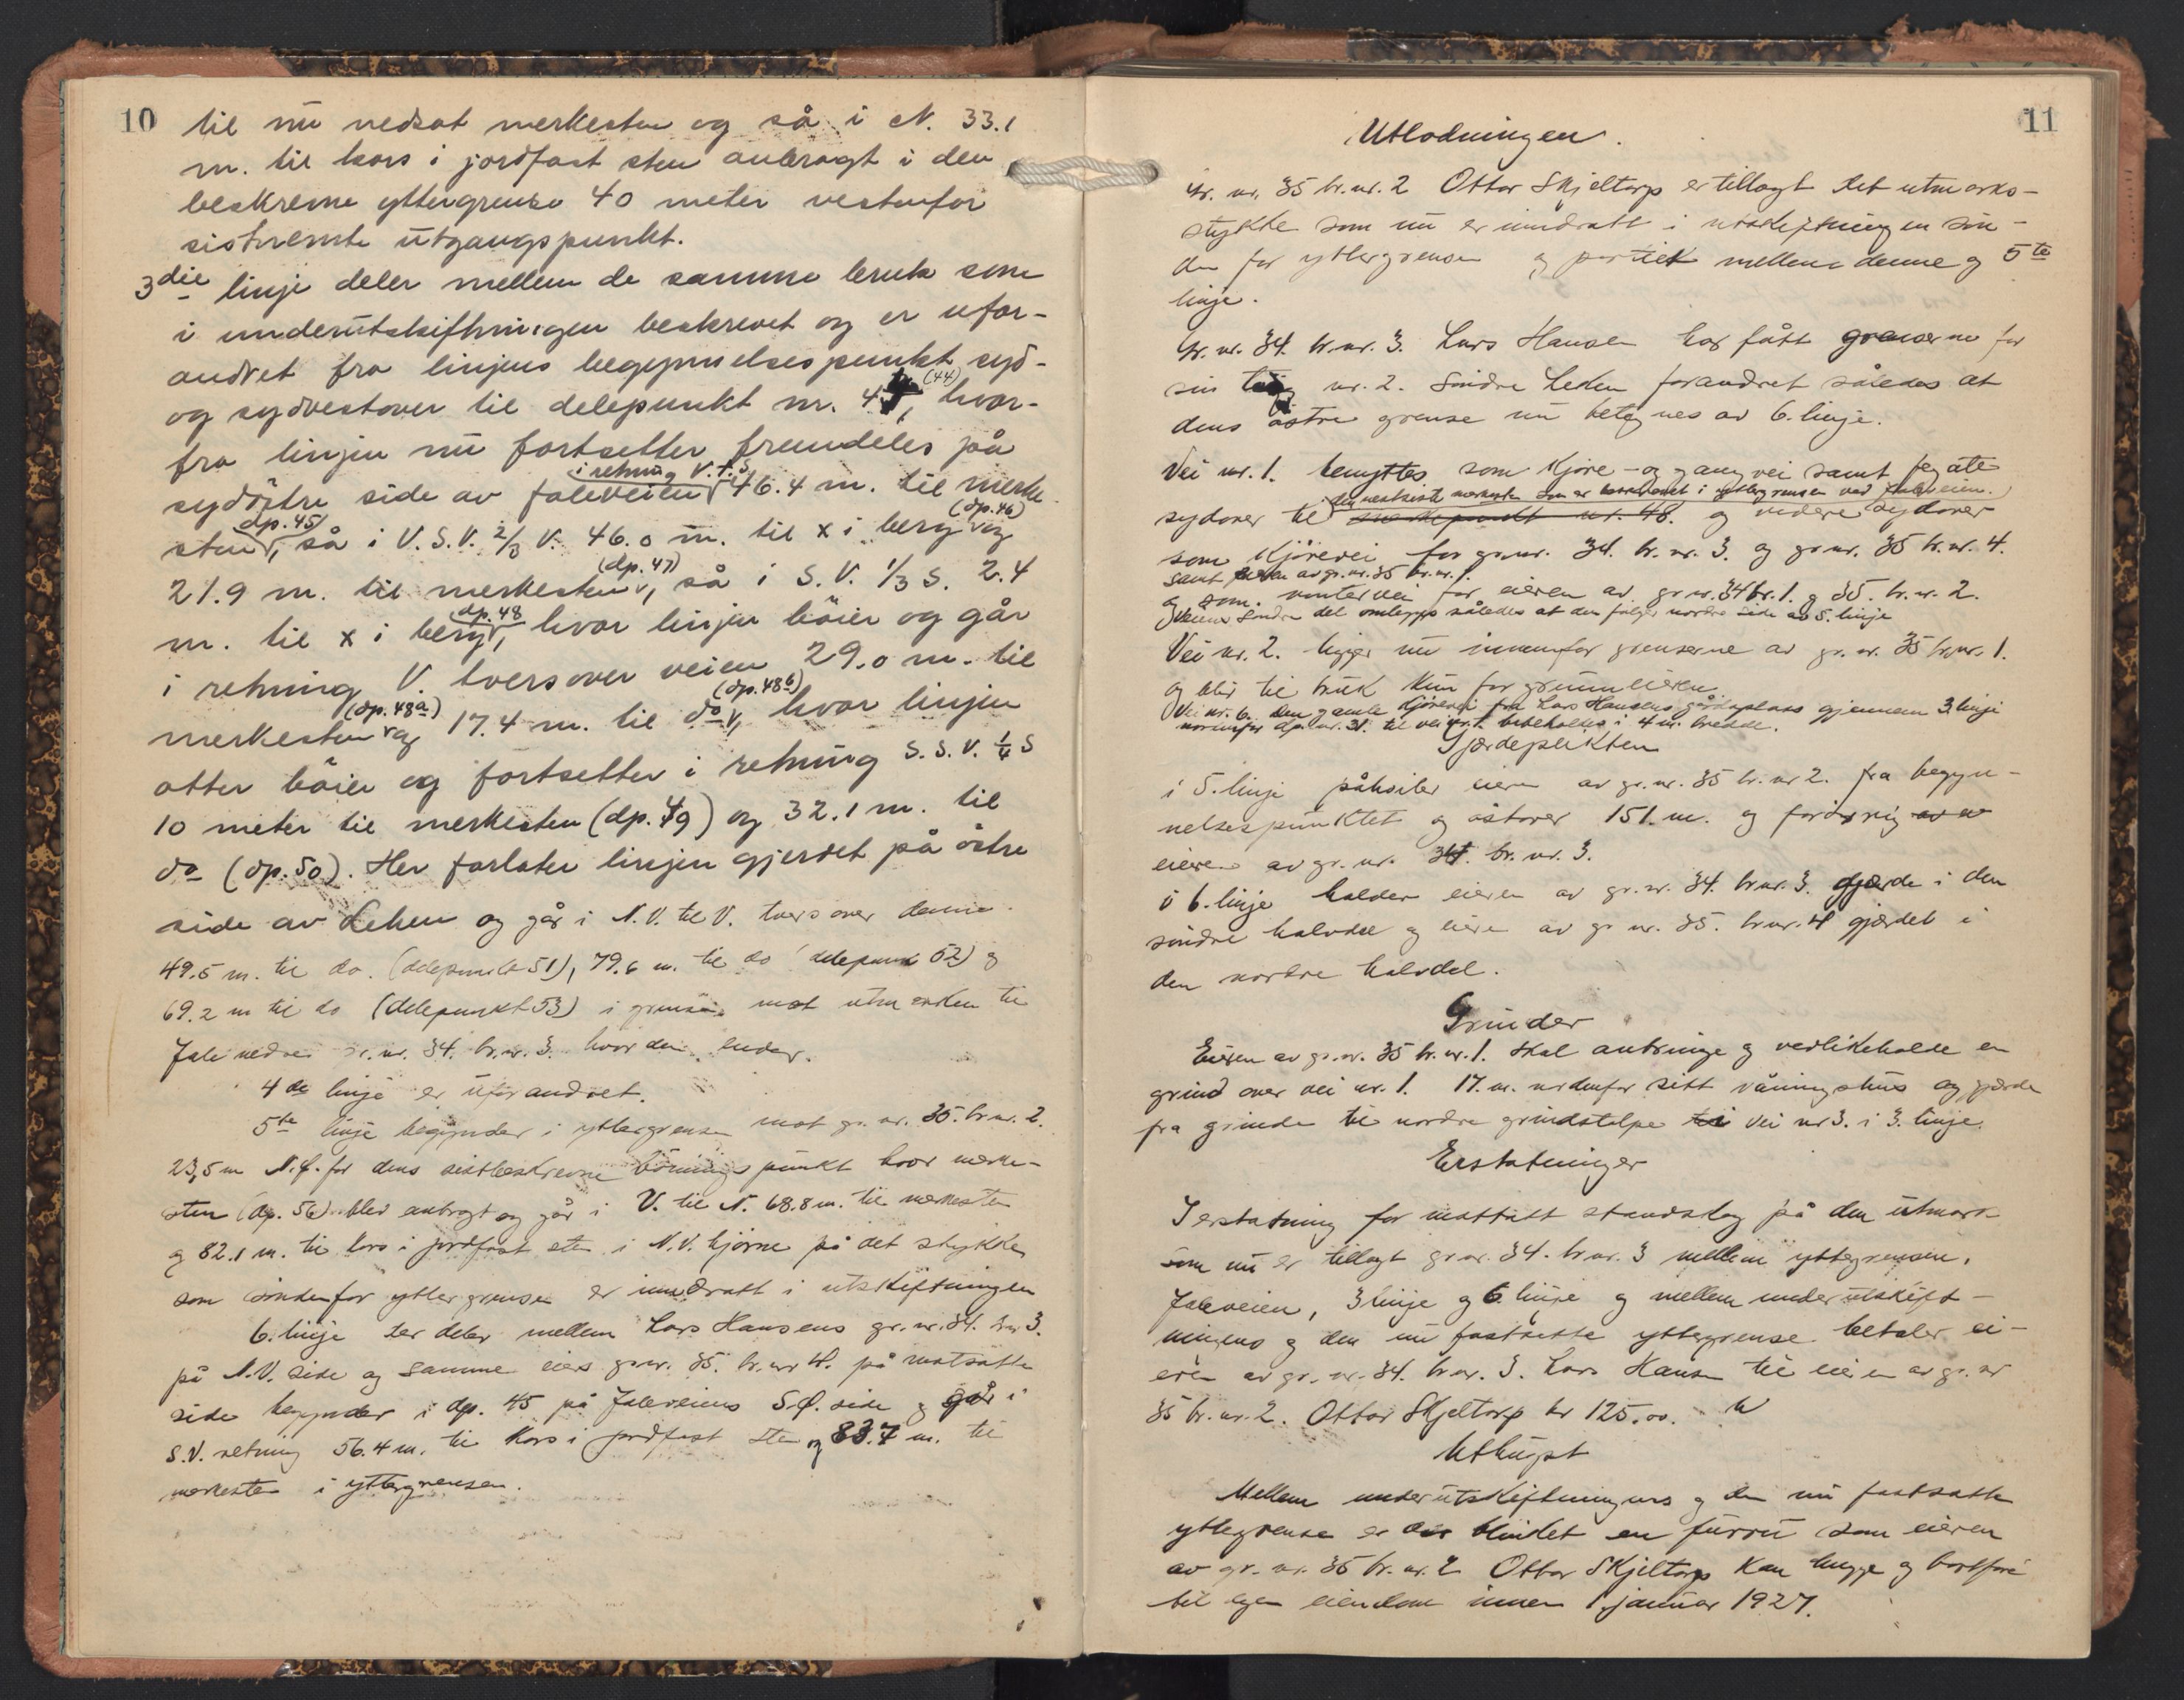 10
til nu nedsat merkesten og så i N. 33.1
m. til kors i jordfast sten anbragt i den
beskrevne yttergrense 40 meter vestenfor
sistnevnte utgangspunkt.
3die linje deler mellem de samme bruk som
i underutskiftningen beskrevet og er ufor-
andret fra linjens begynnelsespunkt syd-
og sydvestover til delepunkt nr. 4 (44), hvor-
fra linjen nu fortsetter fremdeles på
i retning V.t.S
sydöstre side av faleveien 46.4 m. til merke
sten (dp. 45), så i V.S.V. 2/3 V. 46.0 m. til x i berg (dp. 46) og
21.9 m. til merkesten (dp. 47), så i S.V. 1/3 S. 2.4
m. til x i berg dp. 48, hvor linjen böier og går
i retning V. tversover veien 29.0 m. til
merkesten (dp. 48a) og 17.4 m. til do (dp. 48b), hvor linjen
atter böier og fortsetter i retning S.S.V. 1/4 S
10 meter til merkesten (dp. 49) og 32.1 m. til
do (dp. 50). Her forlater linjen gjerdet på östre
side av Lehen og går i N.V. til V. tvers over denne
49.5 m. til do. (delepunkt 51), 79.6 m. til do (delepunkt 52) og
69.2 m til do (delepunkt 53) i grensen mot utmarken til
Fale nedre gr. nr. 34. br. nr. 3. hvor den ender.
4de linje er uforandret.
5te linje begynder i yttergrensen mot gr. nr. 35. br. nr. 2.
23,5 m N.Ø. for dens sistbeskrevne böiningspunkt hvor merke-
sten (dp. 56) blev anbragt og går i V. til N. 68.8 m. til merkesten
og 82.1 m. til kors i jordfast sten i N.V. hjörne på det stykke
som söndenfor yttergrensen er inndratt i utskiftningen
6. linje der deler mellem Lars Hansens gr. nr. 34. br nr 3.
på N.V. side og samme eiers gr. nr. 35. br. nr 4. på motsatte
side begynder i dp. 45 på Faleveiens S.Ø. side og går i
S.V. retning 56.4 m. til kors i jordfast sten og 83.7 m. til
merkesten i yttergrensen.
11
Utlodningen.
Gr. nr. 35 br. nr. 2 Ottar Skjeltorp er tillagt det utmarks-
stykke som nu er inndratt i utskiftningen sön-
den for yttergrensen og partiet mellem denne og 5te
linje.
Gr. nr. 34. br. nr. 3. Lars Hansen har fått grenserne for
sin teig nr. 2. Söndre Lehen forandret således at
dens östre grense nu betegnes av 6. linje.
Vei nr. 1. benyttes som kjöre- og gangvei samt fegate
den nestsiste merkesten som er beskrevet i yttergrensen ved faleveien.
sydover til merkepunkt nr. 48. og videre sydover
som kjörevei for gr. nr. 34. br. nr. 3. og gr nr. 35 br. nr. 4.
samt eieren av gr. nr. 35 br. nr. 1.
og som vintervei for eieren av gr nr. 34 br. 1. og 35. br. nr. 2.
Veiens söndre del omlegges således at den fölger nordre side av 5. linje
Vei nr. 2. ligger nu innenfor grenserne av gr. nr. 35 br. nr. 1.
og blir til bruk kun for grunneieren.
Vei nr. 6. Den gamle kjörevei fra Lars Hansens gårdsplass gjennem 3. linje
nordenfor dp. nr. 31. til vei nr. 1. beholdes i 4 m. bredde.
Gjerdeplikten
i 5. linje påhviler eieren av gr. nr. 35 br. nr 2. fra begyn-
nelsespunktet og östover 151. m. og forövrig
eieren av gr. nr. 34. br. nr. 3.
i 6. linje holder eieren av gr. nr. 34. br nr. 3. gjærde i den
söndre halvdel og eieren av gr nr. 35. br nr. 4 gjærdet i
den nordre halvdel.
Grinder
Eieren av gr. nr. 35 br. nr. 1. skal anbringe og vedlikeholde en
grind over vei nr. 1. 17. m. nordenfor sitt våningshus og gjerde
fra grinden til nordre grindstolpe i vei nr 3. i 3. linje.
Erstatninger
I erstatning for mottatt standskog på den utmark
som nu er tillagt gr nr. 34. br nr. 3 mellem yttergrensen,
Faleveien, 3 linje og 6. linje og mellem underutskift-
ningens og den nu fastsatte yttergrense betaler ei-
eren av gr. nr. 34. br nr. 3. Lars Hansen til eieren av gr. nr
35 br. nr. 2. Ottar Skjeltorp kr 125.00.
Uthugst
Mellem underutskiftningens og den nu fastsatte
yttergrense er der blinket en furu som eieren
av gr. nr. 35 br. nr. 2 Ottar Skjeltorp kan hugge og bortföre
til egen eiendom innen 1 januar 1927.